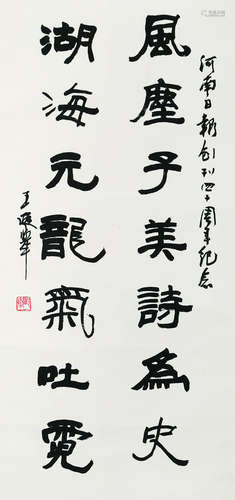 河南日報創刊四十周年紀念
風塵子美詩為史
湖海元龍氣吐霓
王遐舉